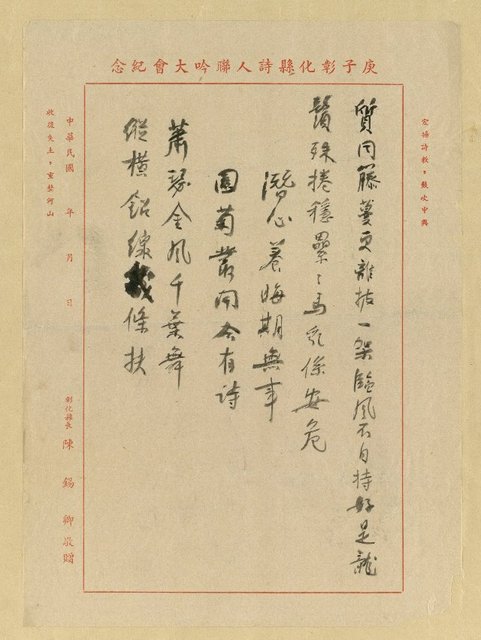 庚子彰化縣詩人聯吟大會紀念
宏揚詩教，鼓吹中興
質同籐蔓更離披一架臨風不自持好是龍
賢殊捲穩纍々馬乳係安危
潛心養晦期無事
園菊叢開今有詩
蕭瑟金風千葉舞
縱橫鉛線條扶
中華民國 年 月 日
收復失土，重整河山
彰化縣長 陳錫卿敬贈